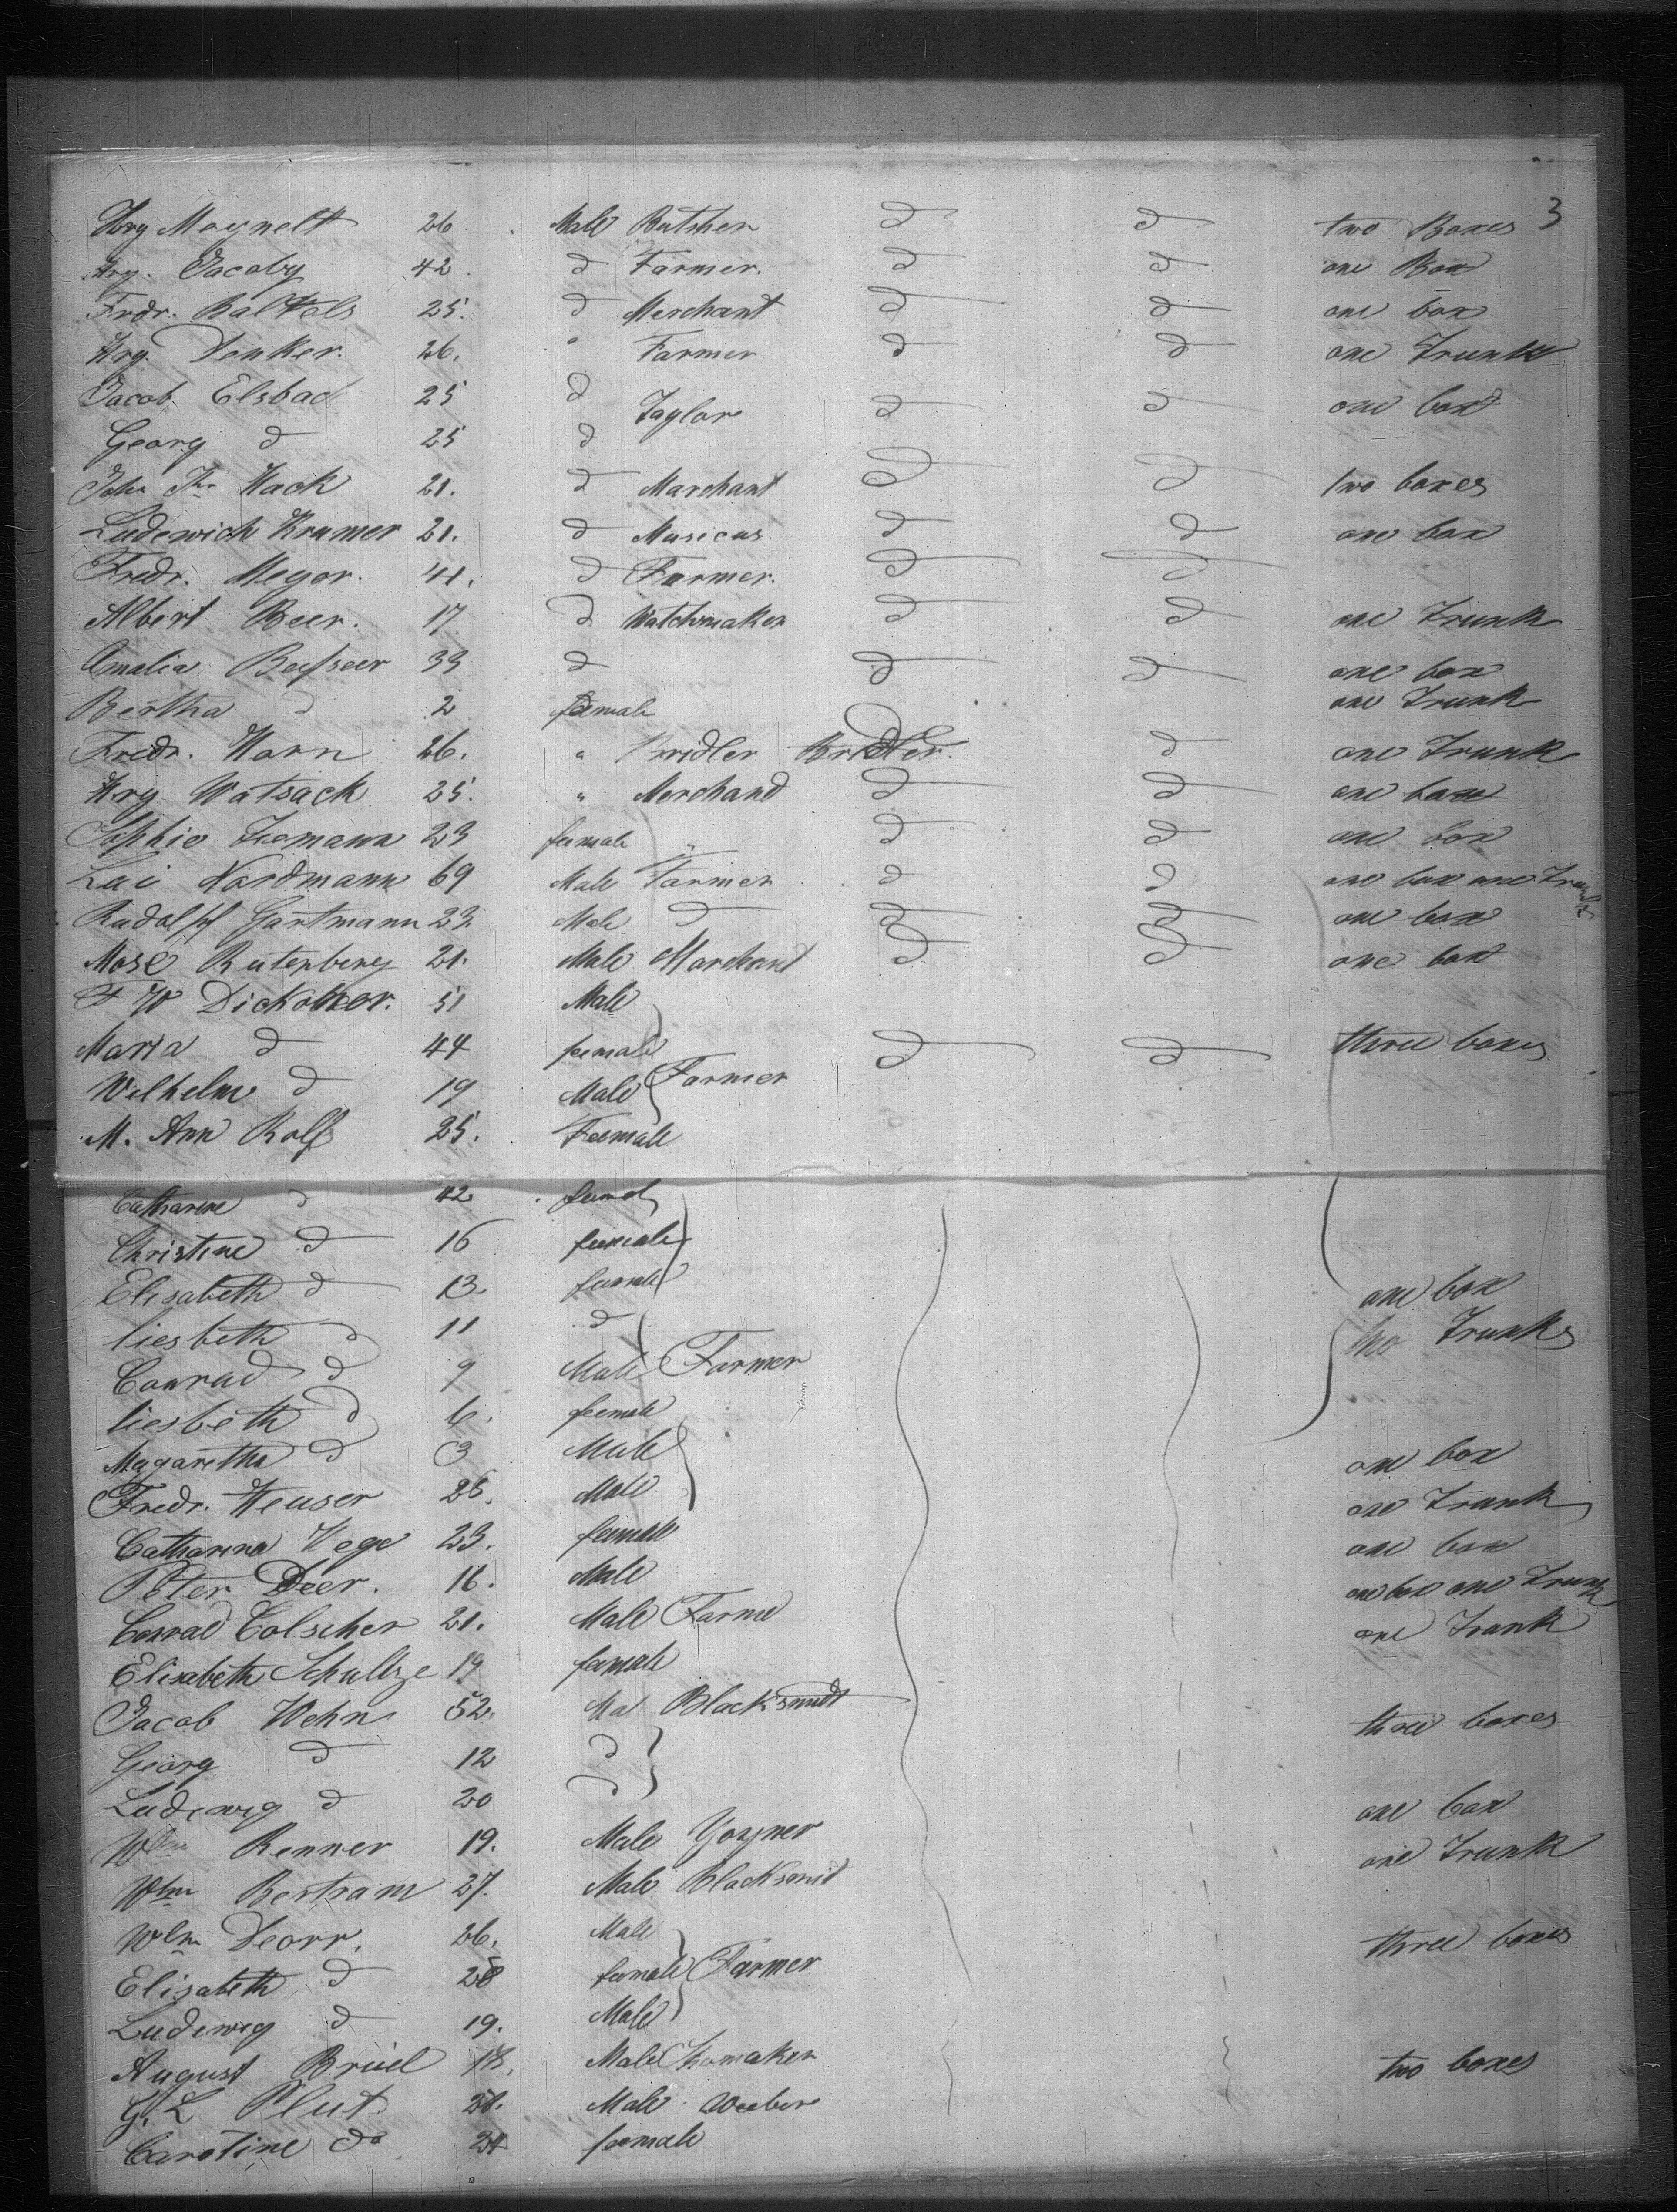 3
Hry Magnelt 26 Male Butsher d d two Boxes
Hry. Jacoby 42. d Farmer. d d one Box
Frdr. Baltals 25. d Merchant d d one box
Hry. Denker. 26. " Farmer d d one Trunk
Jacob Elsbad 25 d Taylor d d one box
Georg d 25 d
John Th. Hack 21. d Marchant d d two boxes
Ludewich Kramer 21. d Musicus d d one box
Fredr. Meyer. 41. d Farmer. d d
Albert Beer. 17 d Watchmaker d d one Trunk
Amalia 33 d d d one box
Bertha d 2 female one Trunk
Fredr. Horn 26. " Bridler Bridler. d one Trunk
Hry Watsack 25. " Merchand d d one box
Sophie Teemann 23 female " d d one box
Lai Nordmann 69 Male Farmer d d one box one Trunk
Rudolpf Gartmann 23 Male d d d one box
Mose Rutenberg 21. Male Marchand d d one box
F W 51 Male
Maria d 44 female d d three boxes
Wilhelm d 19 Male Farmer
M. Ann Rolf 25. Feemale
Catharine d 42
Christine d 16 female
Elisabeth d 13. female one box
liesbeth d 11 d two Trunks
Conrad d 9 Male Farmer
liesbeth d 6. feemale
Magaretha d 3 Male one box
Fredr. Heuser 25. Male one Trunk
Catharina Vege 23. female one box
Peter Deer. 16. Male one box one Trunk
Conrad Colscher 21. Male Farme one Trunk
Elisabeth Schultze 19 female
Jacob Wehn 52. Mal Blacksmidt three boxes
Georg d 12 d
Ludewig d 20 d one box
Wlm Renner 19. Male one Trunk
Wlm Bertram 27. Male Blacksmit
Wlm Dearr. 26. Male three boxes
Elisabeth d 28 female Farmer
Ludewig d 19. Male
August Brüel 18. Male Shomaker two boxes
G. L Plut 28. Male Weeber
Carotine do 21 feemale